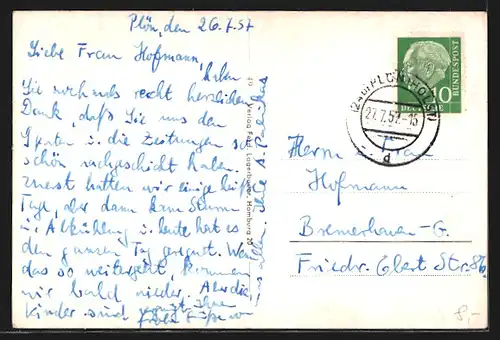 Plön, den 26.7.57
Liebe Frau Hofmann, haben
Sie nochmals recht herzlichen
Dank, daß Sie uns den
Spaten u. die Zeitungen so
schön nachgeschickt haben.
Zuerst hatten wir einige heiße
Tage, aber dann kam Sturm
u. Abkühlung u. heute hat es
den ganzen Tag geregnet. Wenn
das so weitergeht, kommen
wir bald wieder. Aber die
Kinder sind
Ihre A.
Verlag Ferd. Lagerbauer, Hamburg
DEUTSCHE BUNDESPOST
10
(24b) PLÖN (HOLST)
27.7.57-15
d
Herrn u. Frau
Hofmann
Bremerhaven-G.
Friedr. Ebert Str. 86
8,-